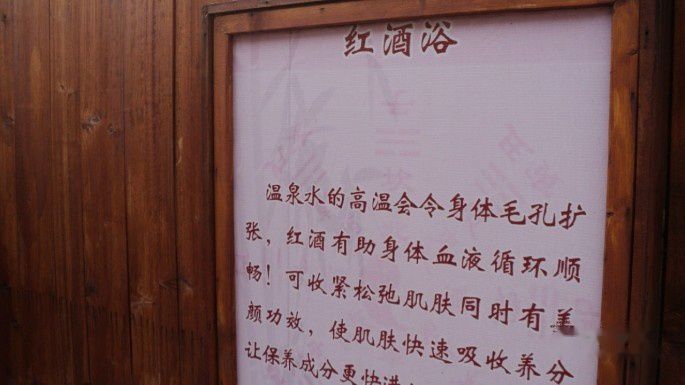 红酒浴
温泉水的高温会令身体毛孔扩
张，红酒有助身体血液循环顺
畅！可收紧松弛肌肤同时有美
颜功效，使肌肤快速吸收养分
让保养成分更快